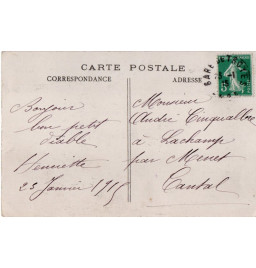 CARTE POSTALE
CORRESPONDANCE
ADRESSE
Bonjour
bon petit
diable
Henriette
23 Janvier 1915
Monsieur
André Cinqualbre
à Lachamp
par Menet
Cantal